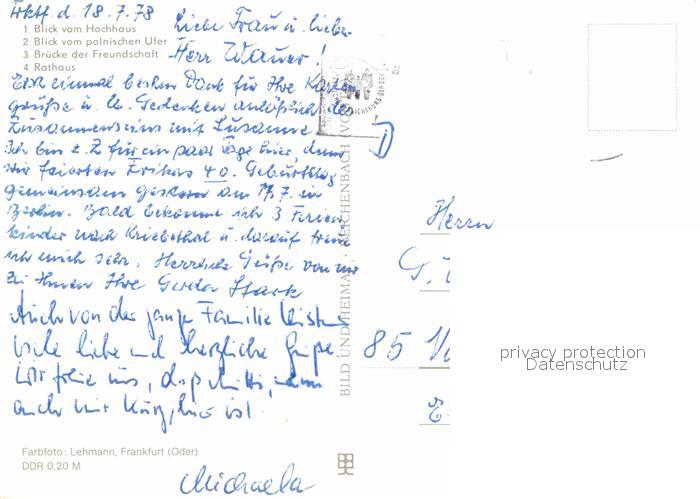 Frkft. d. 18.7.78
1 Blick vom Hochhaus
2 Blick vom polnischen Ufer
3 Brücke der Freundschaft
4 Rathaus
Liebe Frau u. lieber
Herr Wauer!
Erst einmal besten Dank für Ihre Karten
grüße u. lb. Gedenken anläßlich des
Zusammenseins mit Susanne
Ich bin z. Z. für ein paar Tage hier, denn
wir feierten Erikas 40. Geburtstag
gemeinsam gestern am 17.7. in
Berlin. Bald bekomme ich 3 Ferien
kinder nach Kriebethal u. darauf freue
ich mich sehr. Herzliche Grüße von mir
zu Ihnen Ihre Gerda Stark
Auch von der ganzen Familie
viele liebe und herzliche Grüße.
Wir freuen uns, daß Mutti,
auch mit hier ist.
Michaela
Farbfoto: Lehmann, Frankfurt (Oder)
DDR 0,20 M
BILD UND HEIMAT REICHENBACH
Herrn
G.
85
privacy protection
Datenschutz